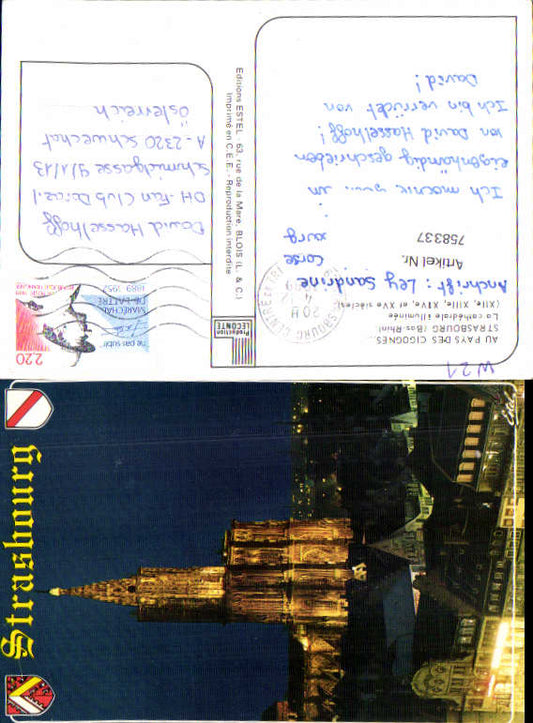 AU PAYS DES CIGOGNES
STRASBOURG (Bas-Rhin)
La cathédrale illuminée
(XIIe, XIIIe, XIVe et XVe siècles)
Anschrift: Ley Sandrine
Corse
Artikel Nr.
758337
Ich in
eigenhändig geschrieben
von David Hasselhoff!
Ich bin verrückt von
David!
W21
Protection
LECONTE
Editions ESTEL - 63, rue de la Mare, BLOIS (L. & C.)
Imprimé en C.E.E. - Reproduction interdite
2,20
ne pas subir
MARÉCHAL
DE LATTRE
1889-1952
David Hasselhoff
DH-Fan Club
Schmidgasse 9/1/13
A-2320 Schwechat
Österreich
Strasbourg